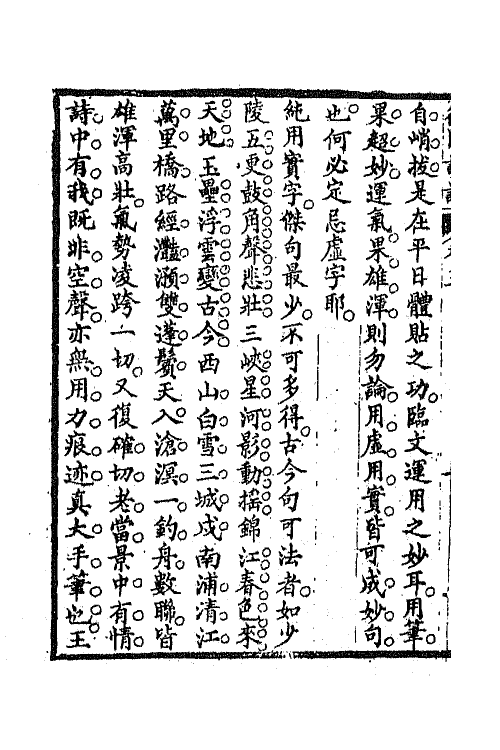 自峭拔是在平日體貼之功臨文運用之妙耳用筆
果超妙運氣果雄渾則勿論用虛用實皆可成妙句
也何必定忌虛字耶
純用實字傑句最少不可多得古今句可法者如少
陵五更鼓角聲悲壯三峽星河影動搖錦江春色來
天地玉壘浮雲變古今西山白雪三城戍南浦清江
萬里橋路經灩澦雙蓬鬢天入滄溟一釣舟數聯皆
雄渾高壯氣勢凌跨一切又復確切老當景中有情
詩中有我既非空聲亦無用力痕迹真大手筆也王